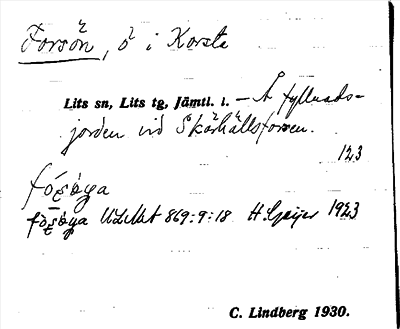 Forsön, ö i Korsta
Lits sn, Lits tg, Jämtl. l. – Å fyllnads-
jorden vid Skärhällsforsen.
123
869:9:18 H Geijer 1923
C. Lindberg 1930.